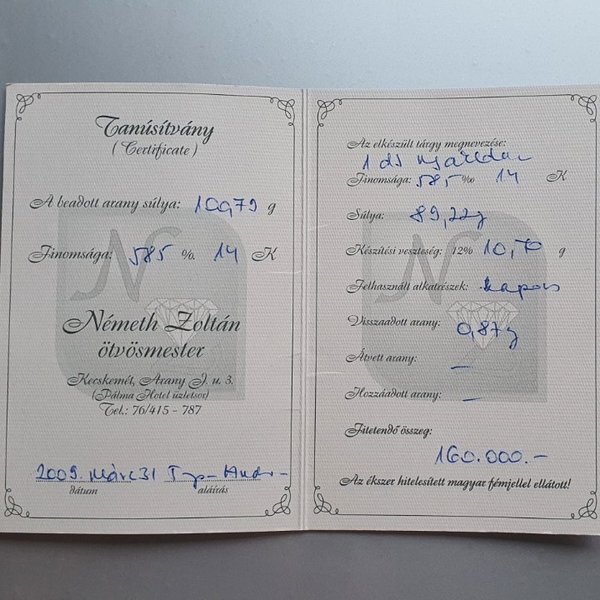 Tanúsítvány
(Certificate)
A beadott arany súlya: 100,79 g
Finomsága: 585 %. 14 K
N
Németh Zoltán
ötvösmester
Kecskemét, Arany J. u. 3.
(Pálma Hotel üzletsor)
Tel.: 76/415 - 787
2009. Márc 31
dátum aláírás
Az elkészült tárgy megnevezése:
1 db nyaklánc
Finomsága: 585 ‰ 14 K
Súlya: 89,22g
Készítési veszteség: 12% 10,70 g
Felhasznált alkatrészek: kapocs
Visszaadott arany: 0,87g
Átvett arany: —
Hozzáadott arany: —
Fizetendő összeg:
160.000.-
Az ékszer hitelesített magyar fémjellel ellátott!